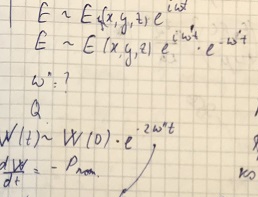 E ~ E(x,y,z) e^{iωt}
E ~ E(x,y,z) e^{iω't} · e^{-ω''t}
ω'' = ?
Q
W(t) ~ W(0) · e^{-2ω''t}
dW/dt = - P